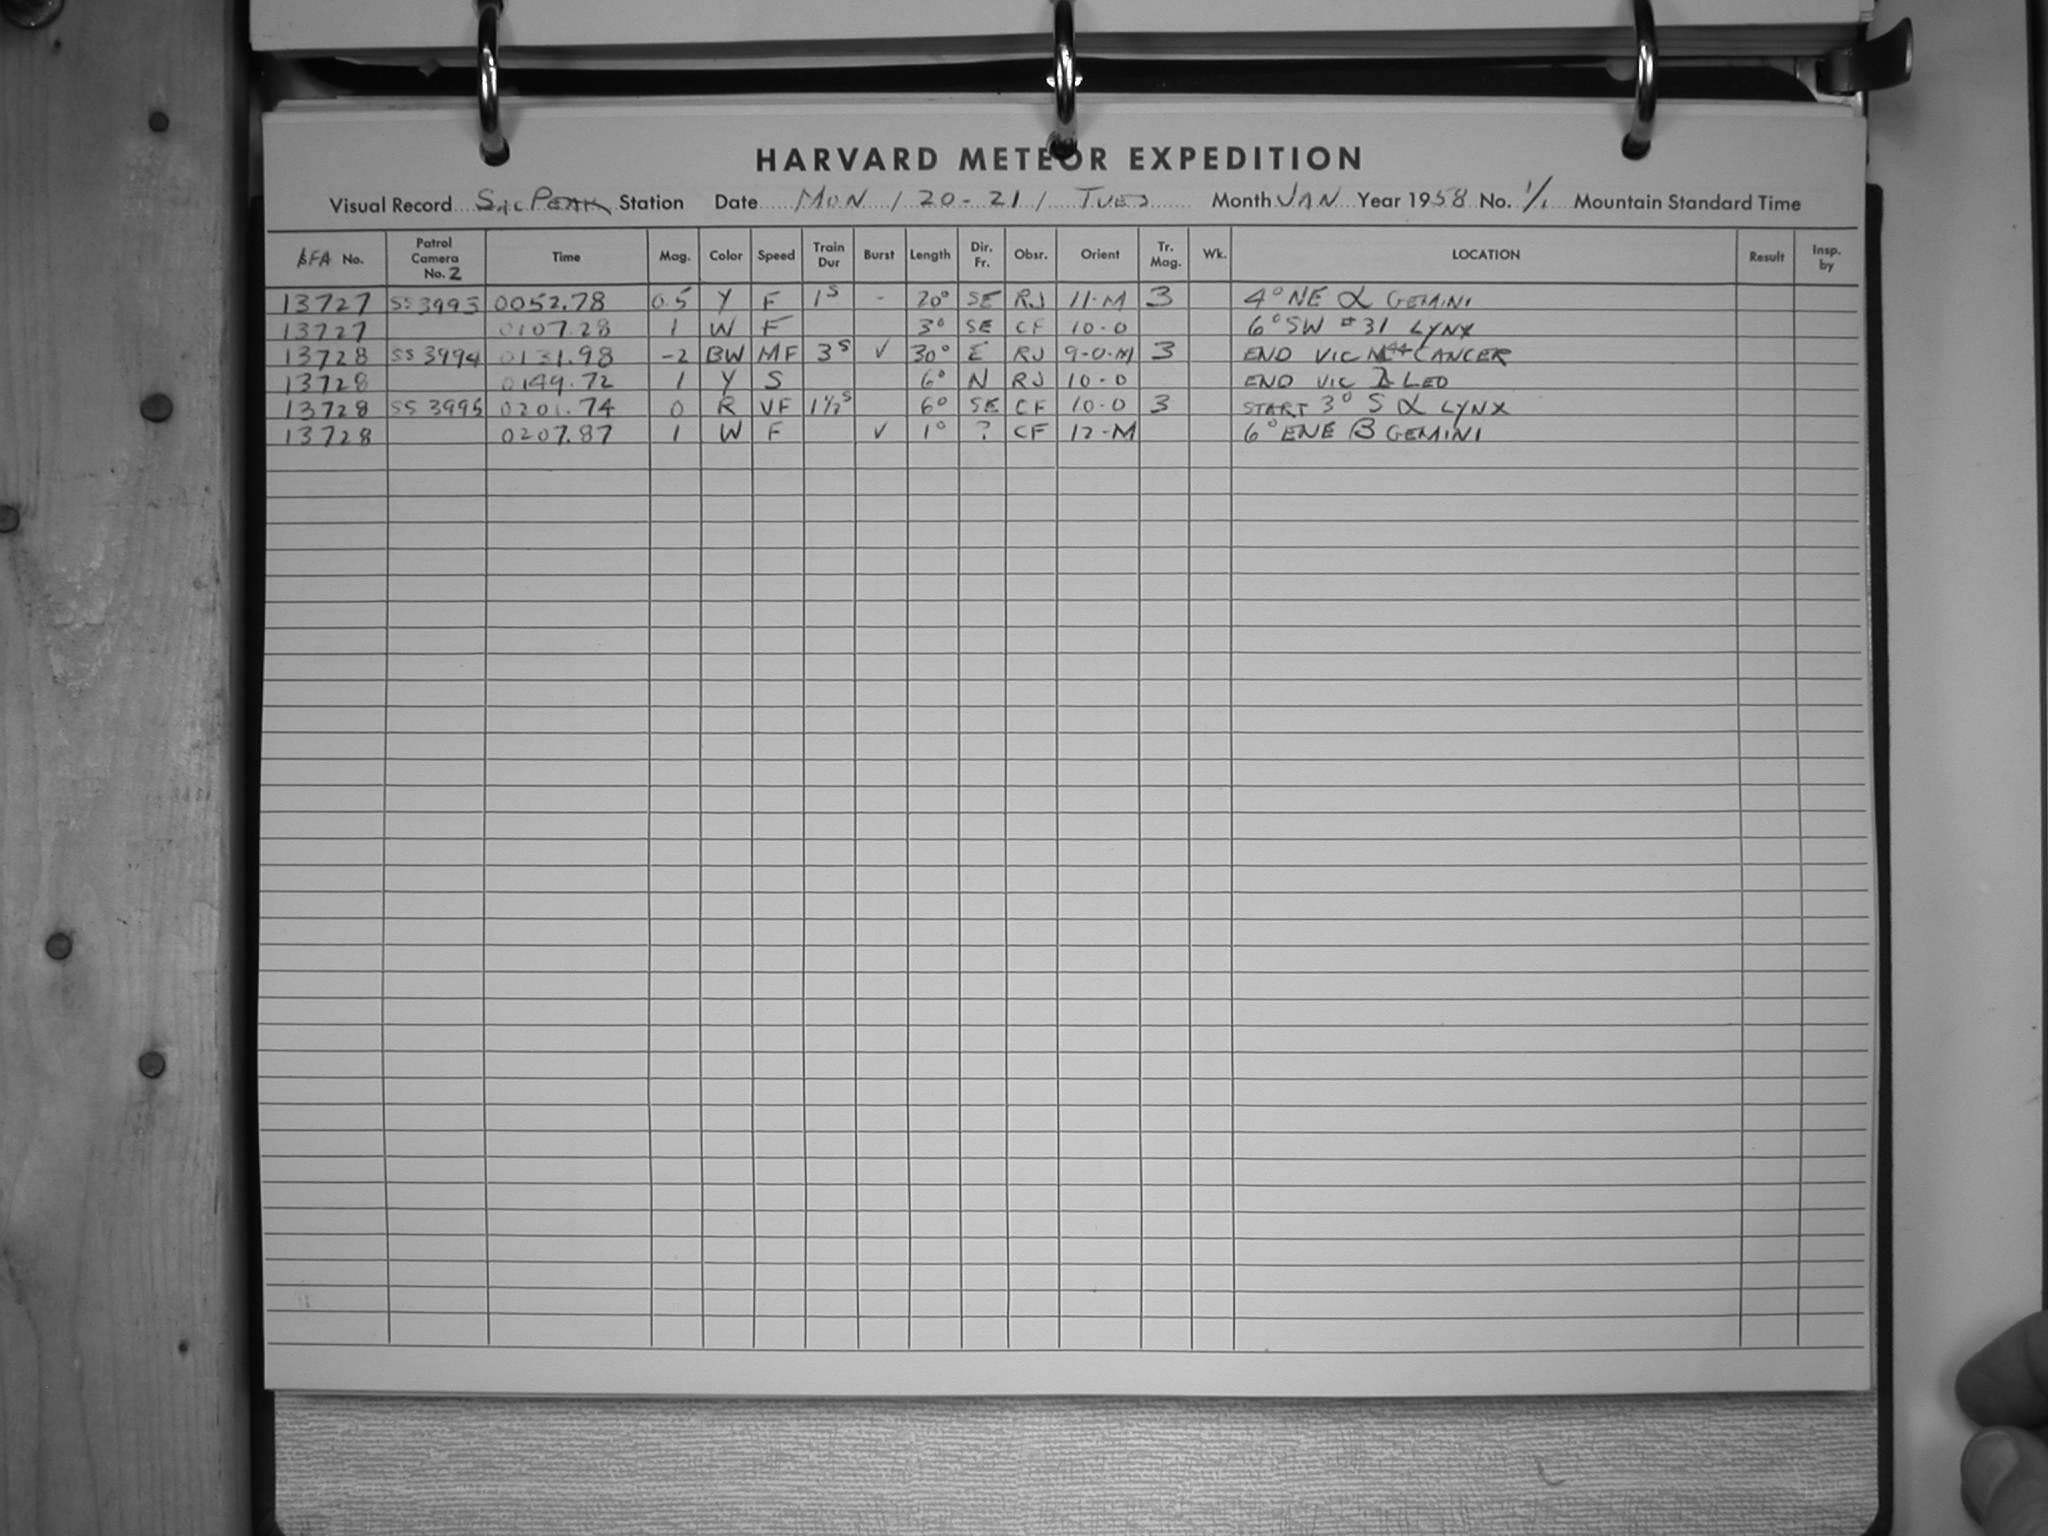 HARVARD METEOR EXPEDITION
Visual Record SAC PEAK Station Date MON / 20-21 / TUES Month JAN Year 1958 No. 1/1 Mountain Standard Time
SFA No. Patrol Camera No. 2 Time Mag. Color Speed Train Dur Burst Length Dir. Fr. Obsr. Orient Tr. Mag. Wk. LOCATION Result Insp. by
13727 SS 3993 0052.78 0.5 Y F 1S - 20° SE RJ 11-M 3 4° NE α GEMINI
13727 0107.28 1 W F 3° SE CF 10-0 6° SW #31 LYNX
13728 SS 3994 0131.98 -2 BW MF 3S ✓ 30° E RJ 9-0-M 3 END VIC M44 CANCER
13728 0149.72 1 Y S 6° N RJ 10-0 END VIC λ LEO
13728 SS 3995 0201.74 0 R VF 1½S 6° SE CF 10-0 3 START 3° S α LYNX
13728 0207.87 1 W F ✓ 1° ? CF 12-M 6° ENE β GEMINI